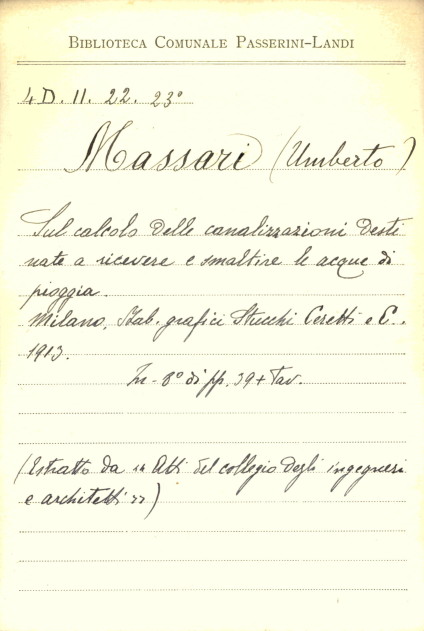 BIBLIOTECA COMUNALE PASSERINI-LANDI
4 D. 11. 22. 23°
Massari (Umberto)
Sul calcolo delle canalizzazioni desti
nate a ricevere e smaltire le acque di
pioggia.
Milano, Stab. grafici Stucchi Ceretti e C..
1913.
In-8° di pp. 39 + Tav.
(Estratto da "Atti del collegio degli ingegneri
e architetti")